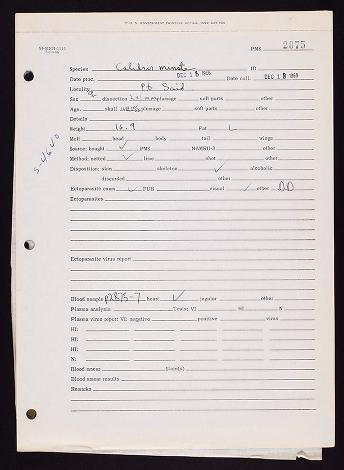 PMS 2875
Species Calidris minuta ID
Date proc. DEC 18 1966 Date coll. DEC 18 1966
Locality Pt Said
Sex dissection plumage soft parts other
Age. skull plumage soft parts other
Details
Weight 16.9 Fat L
Molt head body tail wings
Source: bought PMS NAMRU-3
Method: netted ✓ lime shot other
Disposition: skin skeleton ✓ alcoholic
discarded other
Ectoparasite exam ✓ PDB visual ✓ other DD
Ectoparasites
Ectoparasite virus report
Blood sample P2875-7 heart ✓ jugular other
Plasma analysis Tests: VI HI N
Plasma virus report VI: negative positive virus
HI:
HI:
HI:
N:
Blood smear Slide(s)
Blood smear results
Remarks
S-4640